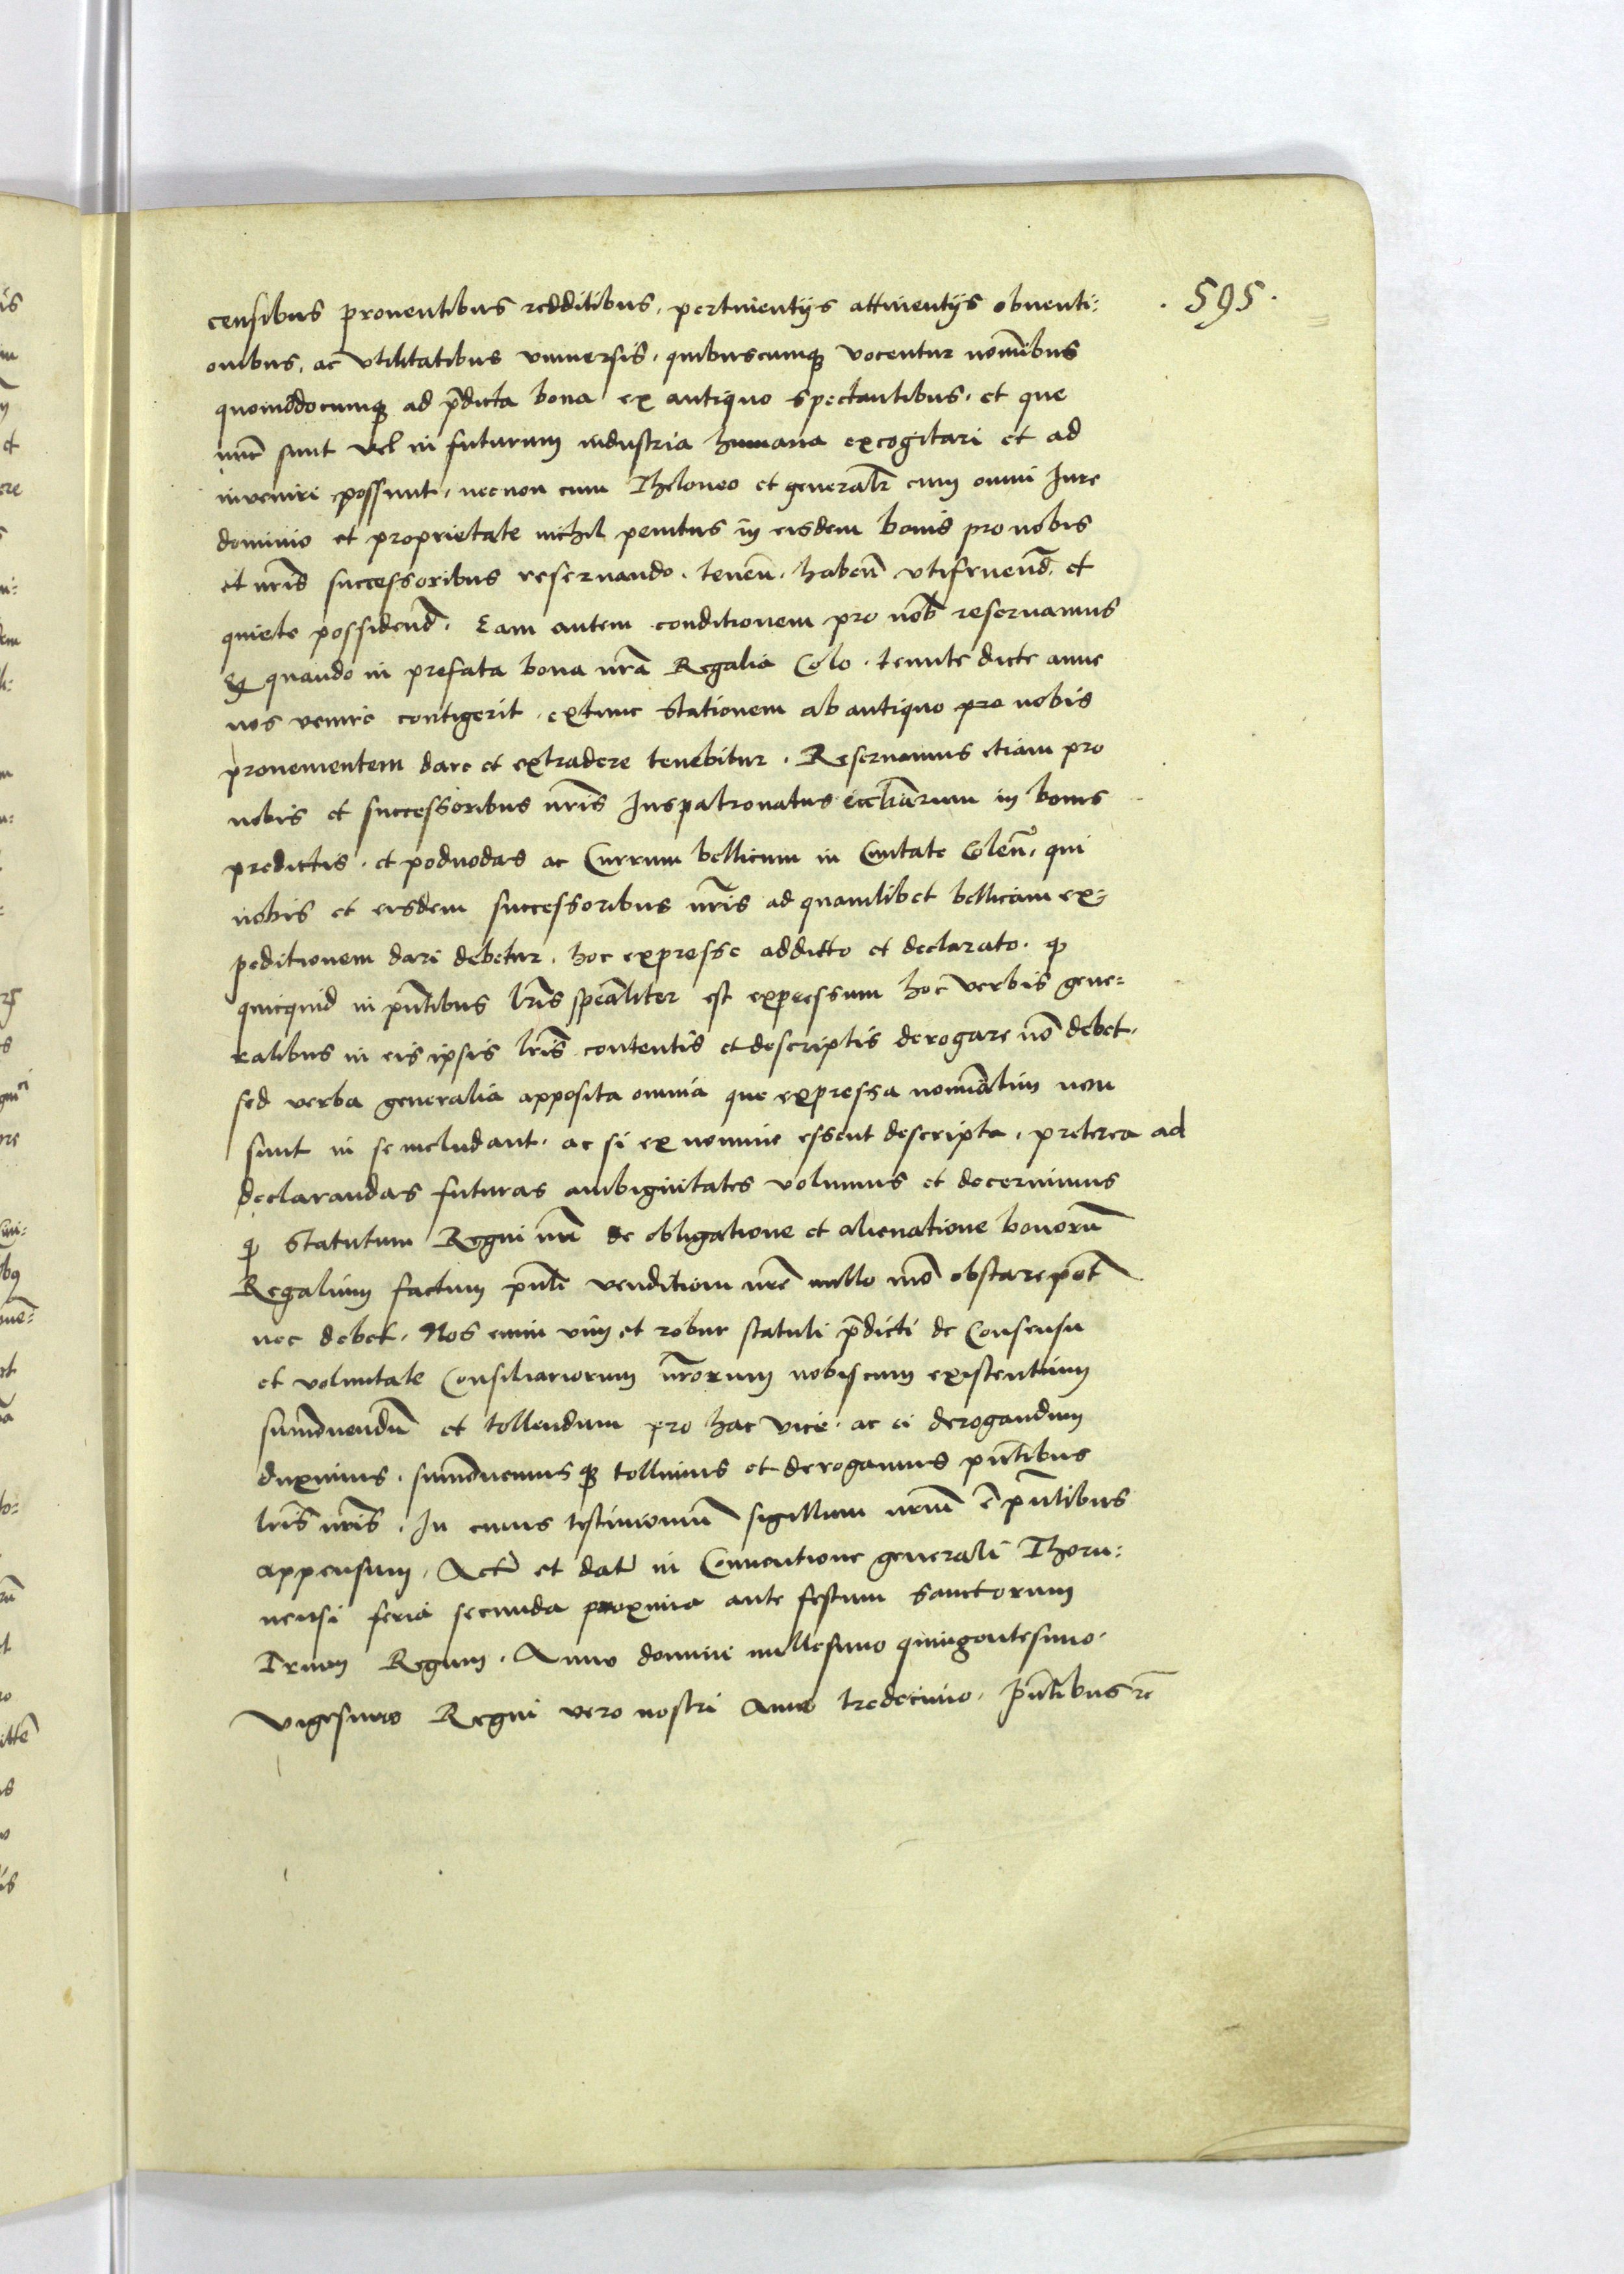 censibus prouentibus redditibus, pertinentijs attinentijs obuenti: . 595 .
onibus, ac vtilitatibus vniuersis, quibuscumq3 vocentur noı̄bus
quomodocumq3 ad p̄dicta bona ex antiquo spectantibus, et que
nūc sunt vel in futurum industria humana excogitari et ad
inveniri possunt, necnon cum Theloneo et generalr̄ cum omni Jure
dominio et proprietate nichil penitus in eisdem bonis pro nobis
et nr̄is successoribus reseruando, tenen̄, haben̄ vtifruend̄ et
quiete possidend̄. Eam autem conditionem pro nob̄ reseruamus
q quando in prefata bona nr̄a Regalia Colo, tenute dicte anne
nos venire contigerit, extunc stationem ab antiquo pro nobis
prouenientem dare et extradere tenebitur. Reseruamus etiam pro
nobis et successoribus nr̄is Juspatronatus eccliārum in bonis
predictis, et podwodas ac Currum bellicum in Ciuitate Colen̄, qui
nobis et eisdem successoribus nr̄is ad quamlibet bellicam ex=
peditionem dari debetur, hoc expresse additto et declarato, q
quicquid in pn̄tibus lr̄is spēaliter est expressum hoc verbis gene=
ralibus in eis ipsis lr̄is contentis et descriptis derogare nō debet,
sed verba generalia apposita omnia que expressa nominātim non
sunt in se includant, ac si ex nomine essent descripta, preterea ad
declarandas futuras ambiguitates volumus et decernimus
q Statutum Regni nr̄i de obligatione et alienatione bonorū
Regalium factum pn̄ti venditioni nr̄e nullo mō obstare pot̄
nec debet, Nos enim vim et robur statuti p̄dicti de Consensu
et voluntate Consiliariorum nr̄orum nobiscum existentium
summouendū et tollendum pro hac vice, ac ei derogandum
duximus, summouemusq3 tollimus et derogamus pn̄tibus
lr̄is nr̄is. In cuius testimoniū sigillum nrūm ē pn̄tibus
appensum, Actū et datū in Conuentione generali Thoru:
nensi feria secunda proxima ante festum sanctorum
Trium Regum, Anno domini millesimo quingentesimo,
vigesimo Regni vero nostri Anno tredecimo, pn̄tibus rc̄